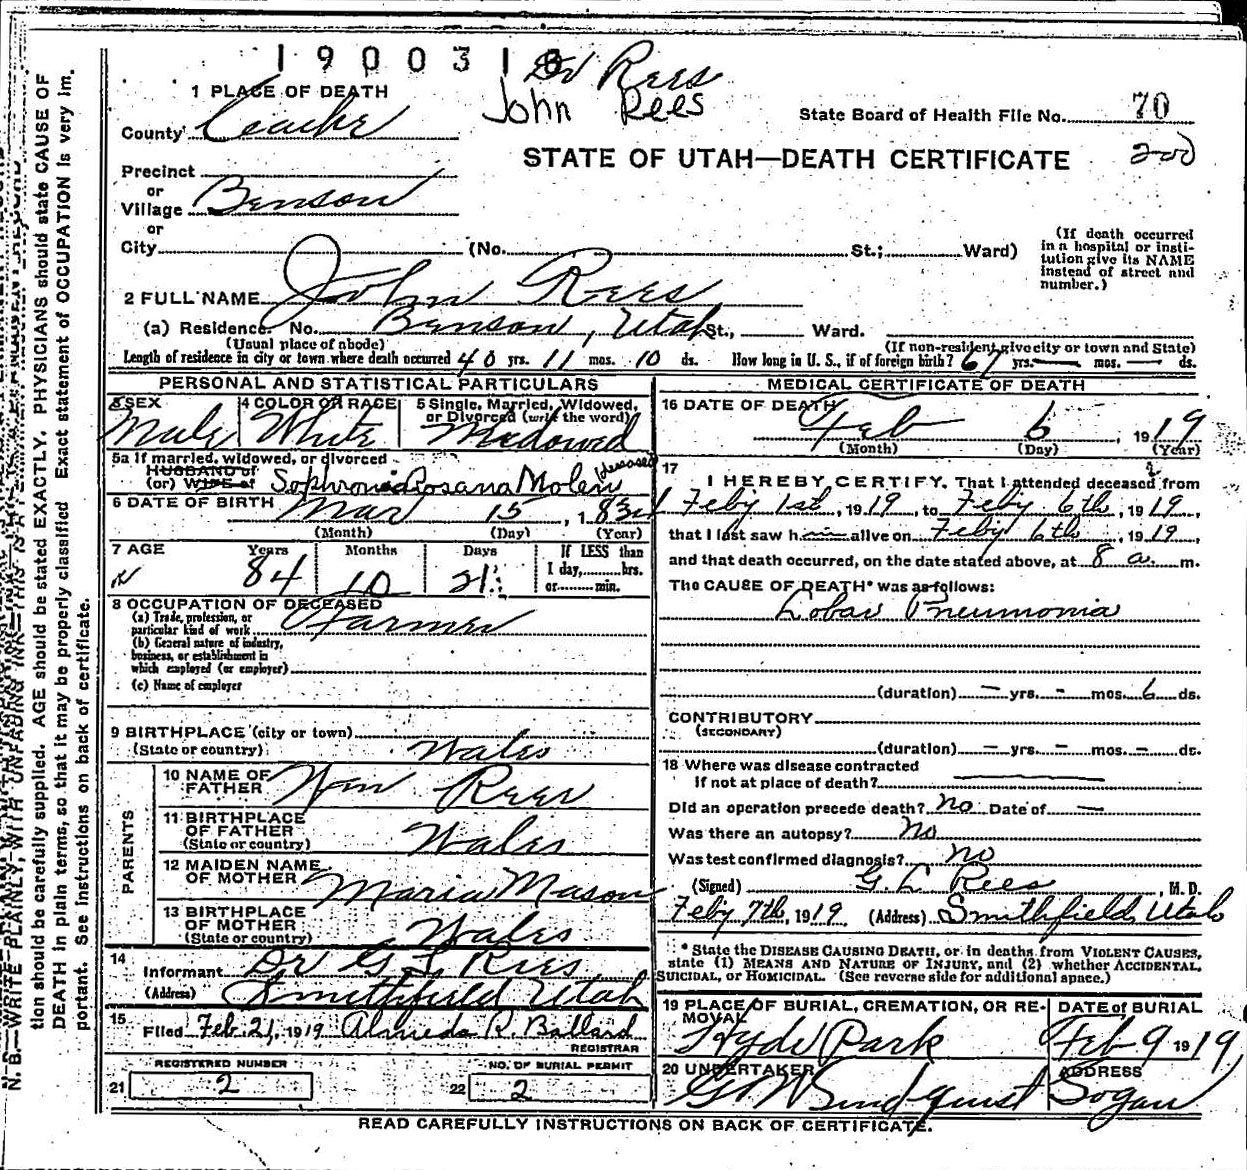 1900318 Dr Rees
John Rees
1 PLACE OF DEATH
County Cache
State Board of Health File No. 70
200
STATE OF UTAH—DEATH CERTIFICATE
Precinct
or
Village Benson
or
City (No. St.; Ward)
(If death occurred in a hospital or institution give its NAME instead of street and number.)
2 FULL NAME John Rees
(a) Residence. No. Benson, Utah St., Ward.
(Usual place of abode) (If non-resident give city or town and State)
Length of residence in city or town where death occurred 48 yrs. 11 mos. 10 ds. How long in U. S., if of foreign birth? 67 yrs. — mos. — ds.
PERSONAL AND STATISTICAL PARTICULARS
3 SEX Male
4 COLOR OR RACE White
5 Single, Married, Widowed, or Divorced (write the word) Widowed
5a If married, widowed, or divorced
HUSBAND of
(or) WIFE of Sophronia Rosana Molen (deceased)
6 DATE OF BIRTH Mar 15, 183
(Month) (Day) (Year)
7 AGE Years 84 Months 10 Days 21
If LESS than 1 day, hrs. or min.
8 OCCUPATION OF DECEASED
(a) Trade, profession, or particular kind of work Farmer
(b) General nature of industry, business, or establishment in which employed (or employer)
(c) Name of employer
9 BIRTHPLACE (city or town)
(State or country) Wales
PARENTS
10 NAME OF FATHER Wm Rees
11 BIRTHPLACE OF FATHER (State or country) Wales
12 MAIDEN NAME OF MOTHER Maria Mason
13 BIRTHPLACE OF MOTHER (State or country) Wales
14 Informant Dr G L Rees
(Address) Smithfield Utah
15 Filed Feb. 21, 1919 Almeda R. Ballard
REGISTRAR
REGISTERED NUMBER
21 2
NO. OF BURIAL PERMIT
22 2
MEDICAL CERTIFICATE OF DEATH
16 DATE OF DEATH
Feb 6, 1919
(Month) (Day) (Year)
17 I HEREBY CERTIFY, That I attended deceased from
Feby 1st, 1919, to Feby 6th, 1919,
that I last saw h alive on Feby 6th, 1919,
and that death occurred, on the date stated above, at 8 a. m.
The CAUSE OF DEATH* was as follows:
Lobar Pneumonia
(duration) — yrs. - mos. 6 ds.
CONTRIBUTORY
(SECONDARY)
(duration) — yrs. - mos. - ds.
18 Where was disease contracted
If not at place of death?
Did an operation precede death? No Date of —
Was there an autopsy? No
Was test confirmed diagnosis? No
(Signed) G. L Rees, M. D.
Feby 7th, 1919 (Address) Smithfield, Utah
* State the DISEASE CAUSING DEATH, or in deaths from VIOLENT CAUSES,
state (1) MEANS AND NATURE OF INJURY, and (2) whether ACCIDENTAL,
SUICIDAL, or HOMICIDAL. (See reverse side for additional space.)
19 PLACE OF BURIAL, CREMATION, OR REMOVAL Hyde Park
DATE of BURIAL Feb 9 1919,
20 UNDERTAKER
ADDRESS Logan
READ CAREFULLY INSTRUCTIONS ON BACK OF CERTIFICATE.
N. B.—WRITE PLAINLY, WITH UNFADING INK—THIS IS A PERMANENT RECORD
tion should be carefully supplied. AGE should be stated EXACTLY. PHYSICIANS should state CAUSE OF
DEATH in plain terms, so that it may be properly classified Exact statement of OCCUPATION is very im.
portant. See instructions on back of certificate.